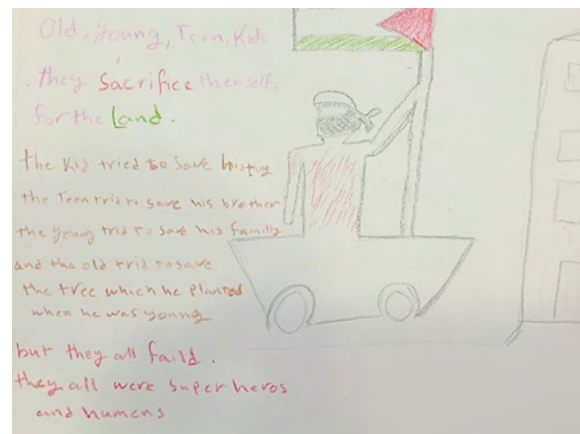 Old, Young, Teen, Kids
they sacrifice themself.
for the Land.
the Kid tried to save his toy
the Teen trid to save his brother
the young trid to save his family
and the old trid to save
the tree which he planted
when he was young
but they all faild.
they all were super heros
and humens